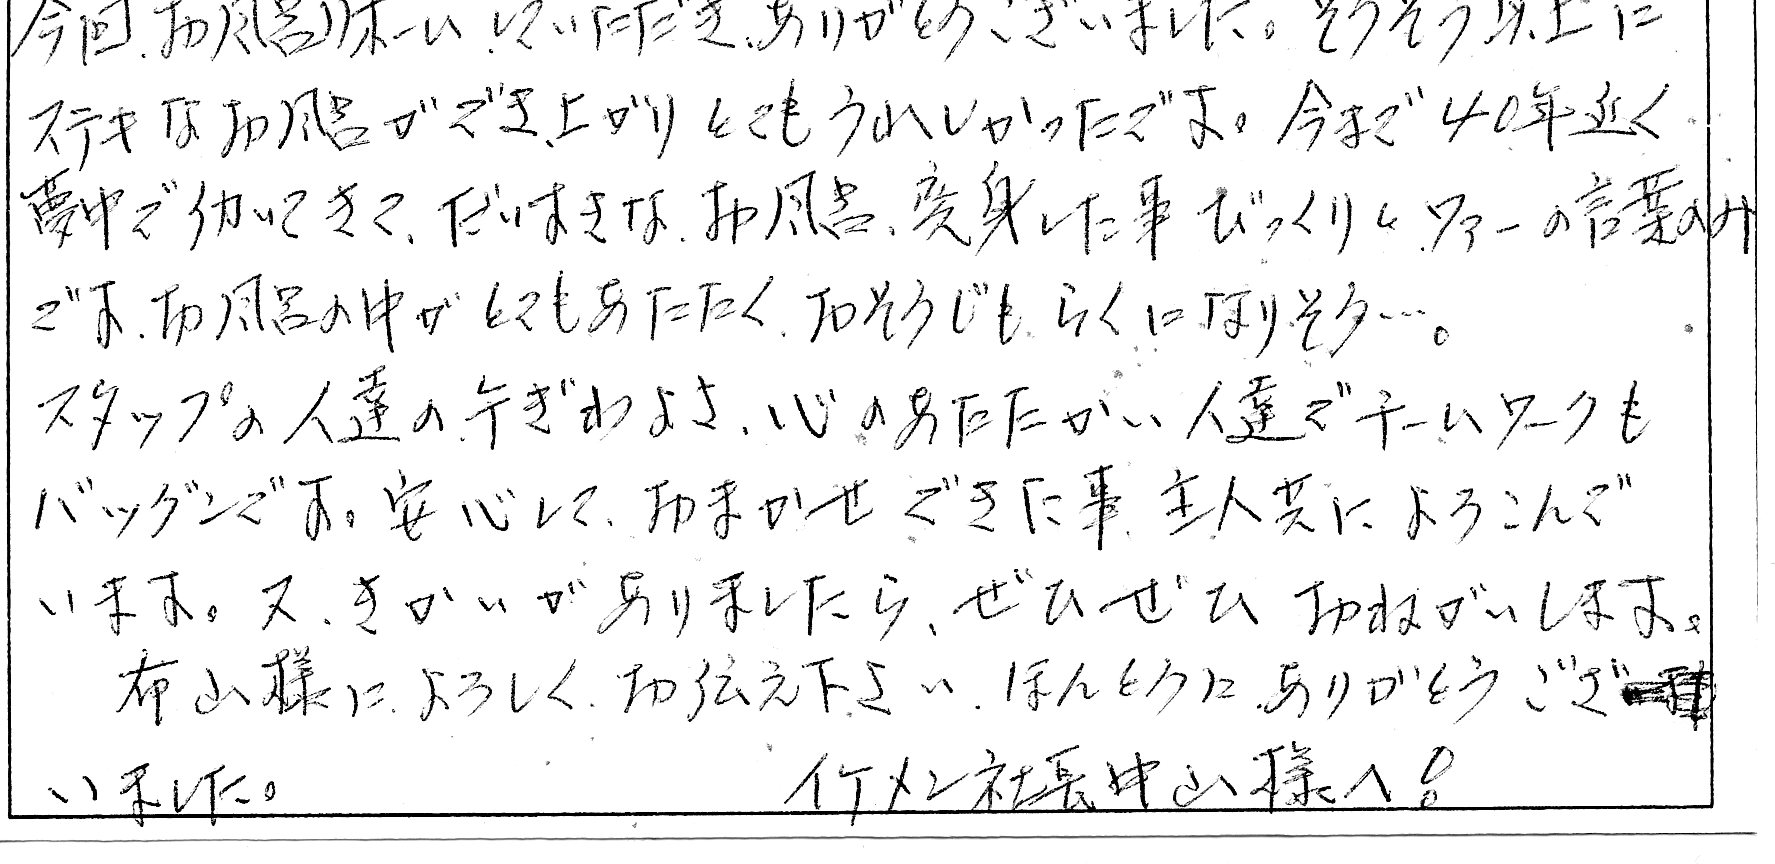 今回、お風呂リホームしていただき、ありがとうございました。そうぞう以上に
ステキなお風呂ができ上がりとてもうれしかったです。今まで40年近く
夢中で働いてきて、だいすきな、お風呂、変身した事びっくりとワァーの言葉のみ
です、お風呂の中がとてもあたたく、おそうじもらくになりそう…。
スタップの人達の手ぎわよさ、心のあたたかい人達でチームワークも
バッグンです。安心して、おまかせできた事、主人共によろこんで
います。又、きかいがありましたら、ぜひぜひおねがいします。
布山様によろしくお伝え下さい、ほんとうにありがとうござ
いました。 イケメン社長中山様へ!